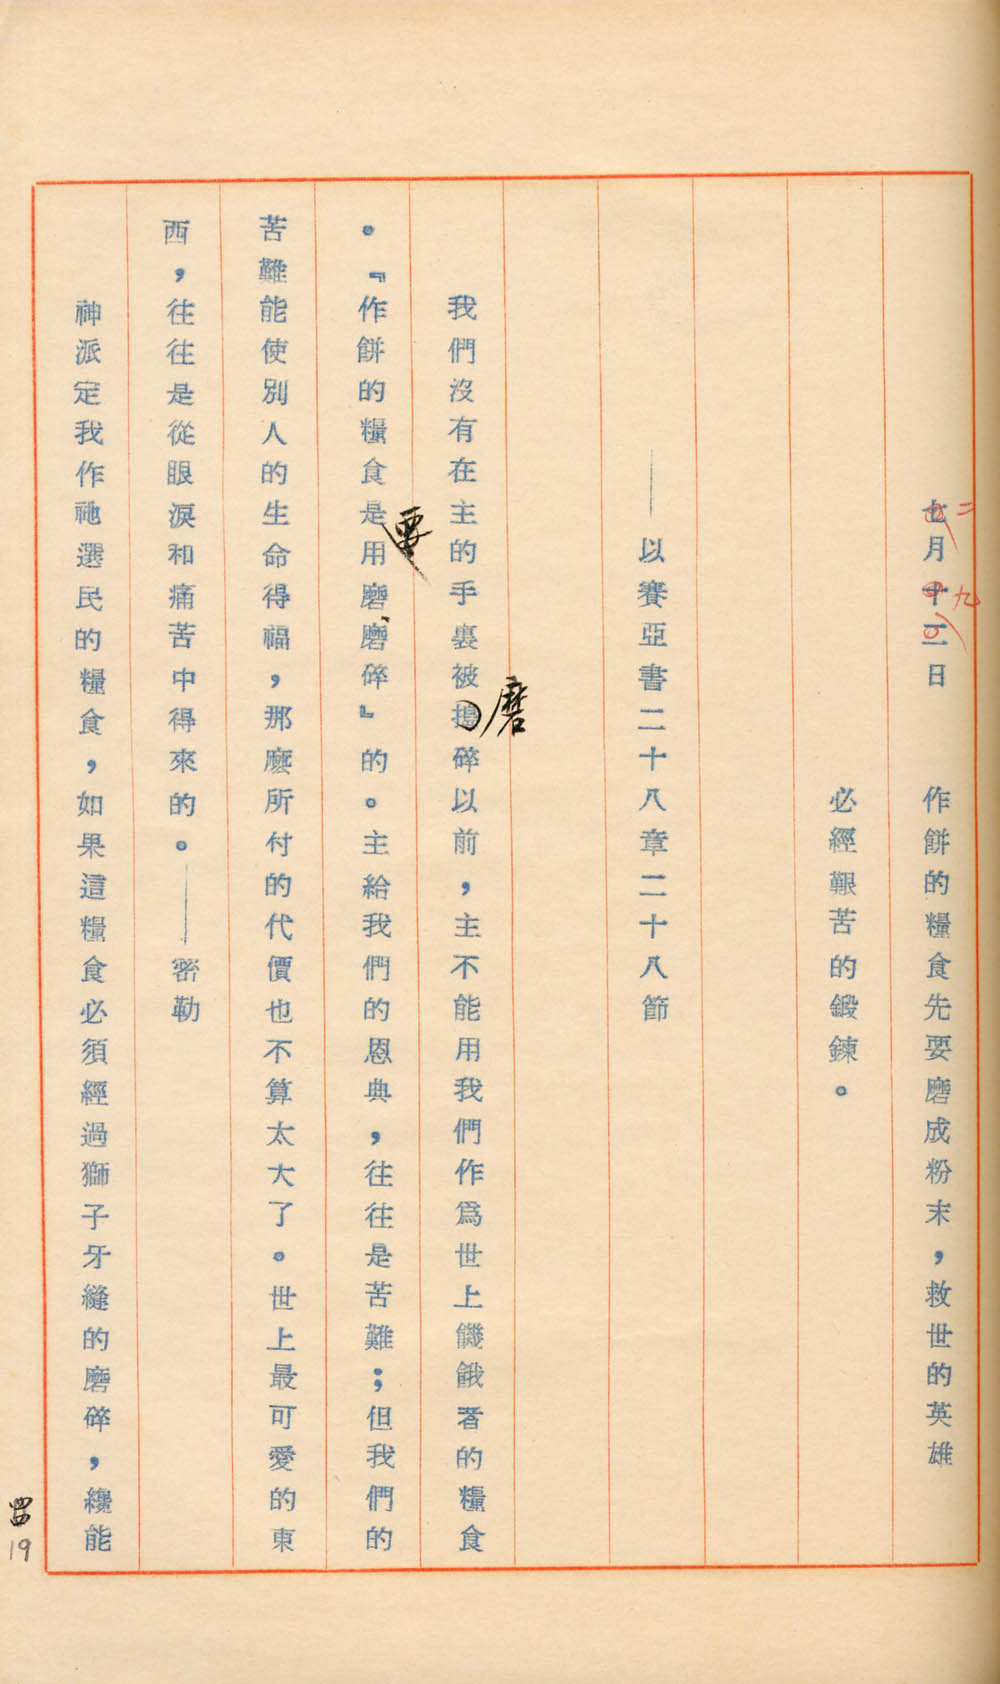 七月十二日　作餅的糧食先要磨成粉末，救世的英雄
二
九
必經艱苦的鍛鍊。
——以賽亞書二十八章二十八節
我們沒有在主的手裏被搗碎以前，主不能用我們作爲世上饑餓者的糧食
磨
。『作餅的糧食是用磨磨碎』的。主給我們的恩典，往往是苦難；但我們的
要
苦難能使別人的生命得福，那麽所付的代價也不算太大了。世上最可愛的東
西，往往是從眼淚和痛苦中得來的。——密勒
神派定我作祂選民的糧食，如果這糧食必須經過獅子牙縫的磨碎，纔能
19